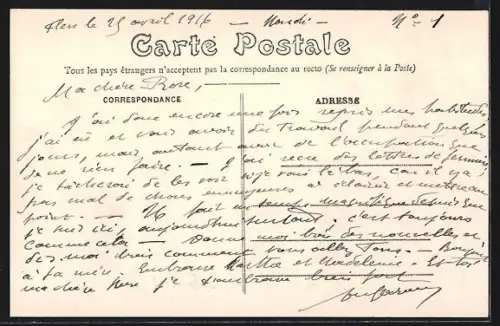 Flers le 25 avril 1916 — Mardi — N° 1
Carte Postale
Tous les pays étrangers n'acceptent pas la correspondance au recto (Se renseigner à la Poste)
Ma chère Rose,
CORRESPONDANCE ADRESSE
J'ai donc encore une fois repris mes habitudes,
j'ai eu et vais avoir du travail pendant quelques
jours, mais autant avoir de l'occupation que
de ne rien faire. — J'ai reçu des lettres de
je tâcherai de les voir car il y a
pas mal de choses à éclaircir et mettre au
point. — Il fait un temps magnifique depuis que
je suis ici, aujourd'hui surtout. c'est toujours
comme cela — Donne moi des nouvelles et
dis moi bien comment vous allez tous. — Bonjour
à ta mère. Embrasse Marthe et Madeleine. Et toi
ma chère Rose je t'embrasse bien fort